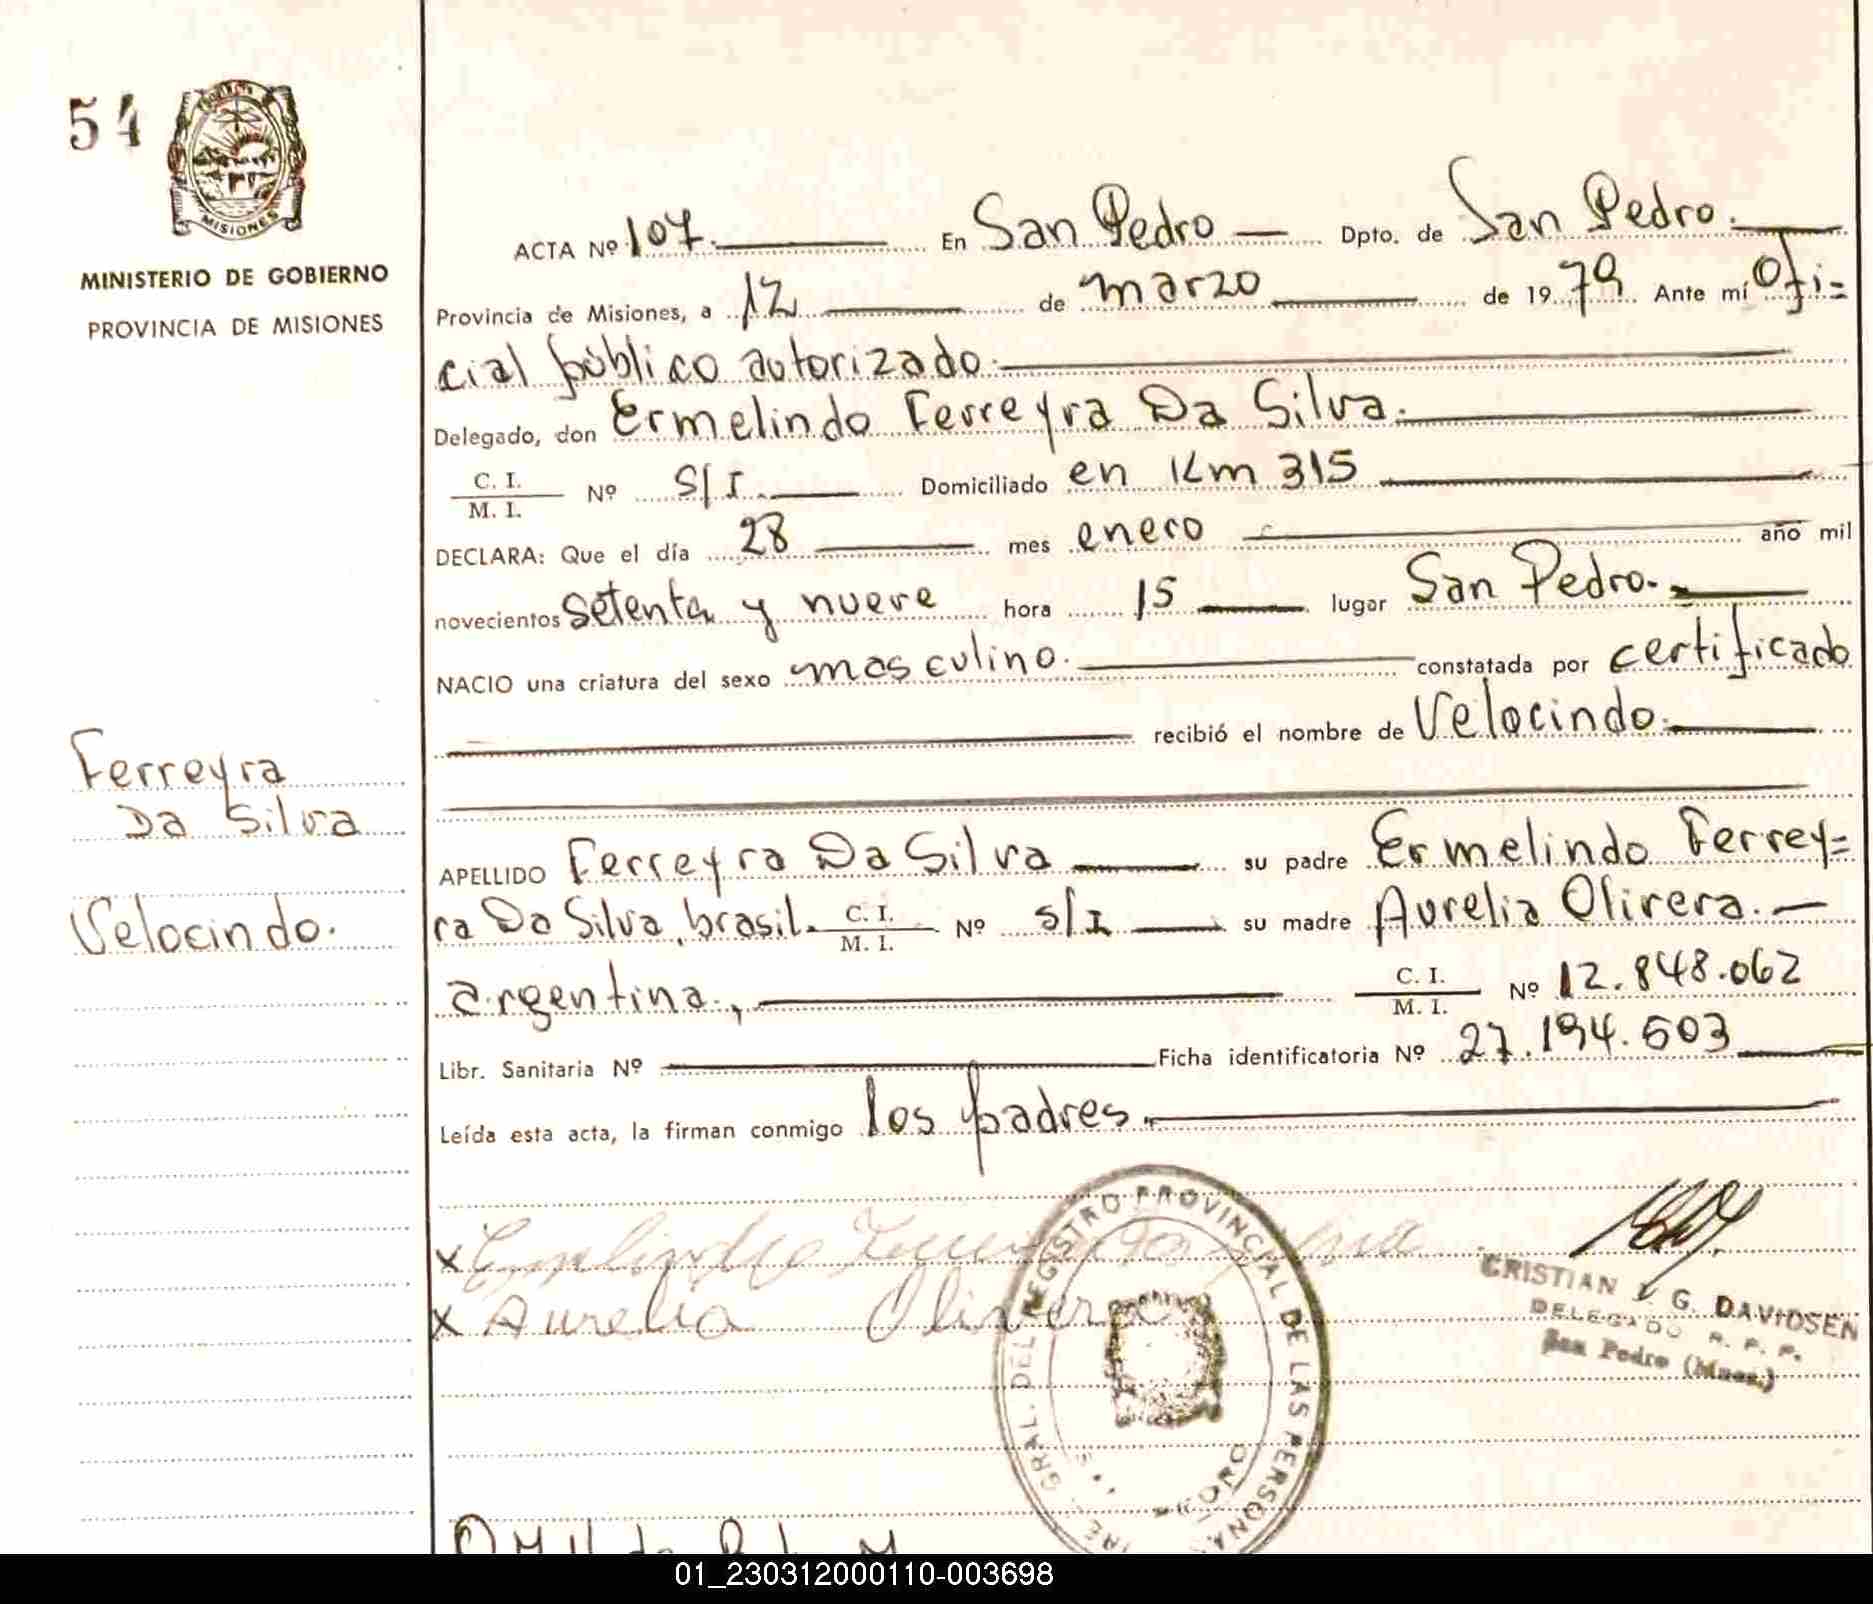 54
MISIONES
MINISTERIO DE GOBIERNO
PROVINCIA DE MISIONES
Ferreyra
Da Silva
Velocindo.
ACTA Nº 107. En San Pedro — Dpto. de San Pedro.
Provincia de Misiones, a 12 de marzo de 1979 Ante mí Ofi=
cial público autorizado.
Delegado, don Ermelindo Ferreyra Da Silva.
C. I.
M. I. Nº S/I. Domiciliado en Km 315
DECLARA: Que el día 28 mes enero año mil
novecientos setenta y nueve hora 15 lugar San Pedro.
NACIO una criatura del sexo masculino. constatada por certificado
recibió el nombre de Velocindo.
APELLIDO Ferreyra Da Silva su padre Ermelindo Ferrey=
ra Da Silva, brasil. C. I. M. I. Nº S/I su madre Aurelia Olivera. —
argentina., C. I. M. I. Nº 12.848.062
Libr. Sanitaria Nº Ficha identificatoria Nº 27.194.503
Leída esta acta, la firman conmigo los padres.
x Ermelindo Ferreyra da Silva
x Aurelia Olivera
GRAL. DEL REGISTRO PROVINCIAL DE LAS PERSONAS
CRISTIAN G. DAVIDSEN
DELEGADO R. P. P.
San Pedro (Mnes.)
01_230312000110-003698